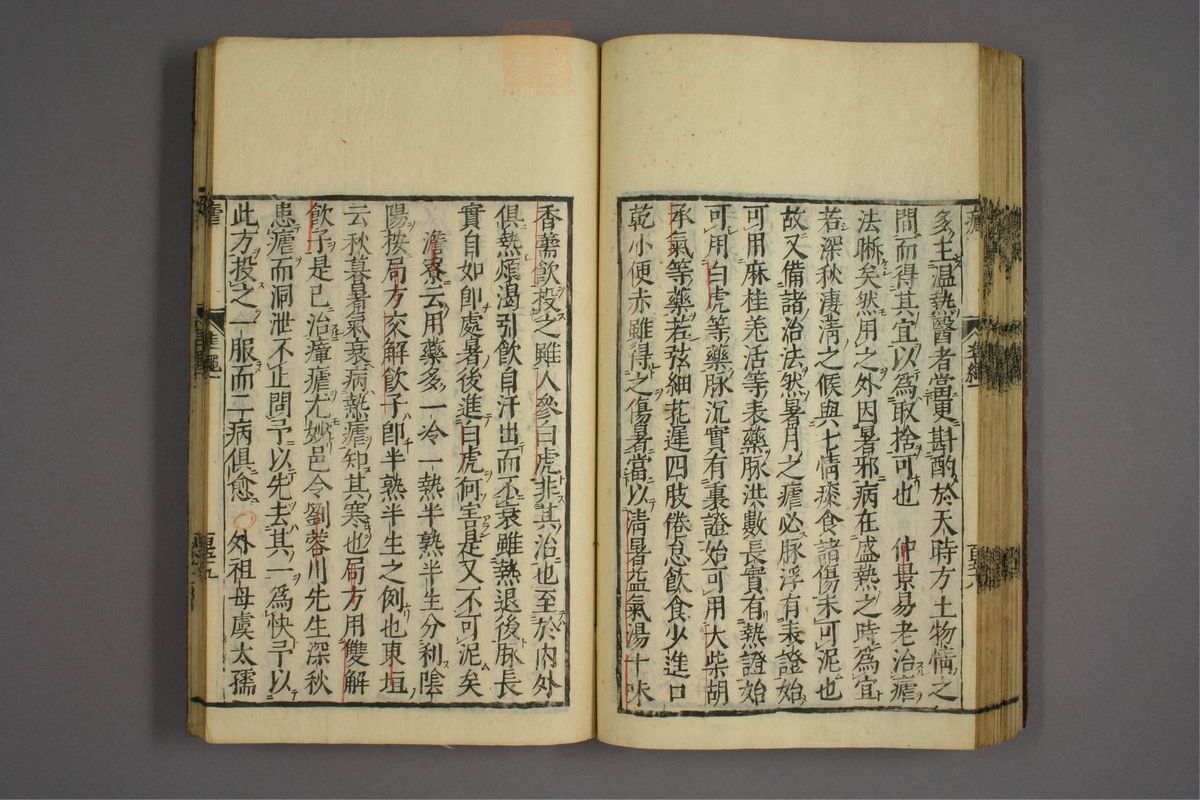 多主温熱醫者當更斟酌於天時方土物情之
間而得其宜以爲取捨可也　仲景易老治瘧
法晰矣然用之外因暑邪病在盛熱之時爲宜
若深秋淒清之候與七情痰食諸傷未可泥也
故又備諸治法然暑月之瘧必脉浮有表證始
可用麻桂羌活等表藥脉洪數長實有熱證始
可用白虎等藥脉沉實有裏證始可用大柴胡
承氣等藥若弦細芤遲四肢倦怠飲食少進口
乾小便赤雖得之傷暑當以清暑益氣湯十味
香薷飲投之雖人參白虎非其治也至於内外
俱熱煩渴引飲自汗出而不衰雖熱退後脉長
實自如即處暑後進白虎何害是又不可泥矣
澹寮云用藥多一冷一熱半熟半生分利陰
陽按局方交解飲子即半熟半生之例也東垣
云秋暮暑氣衰病熱瘧知其寒也局方用雙解
飲子是已治瘴瘧尤妙邑令劉蓉川先生深秋
患瘧而洞泄不止問予以先去其一爲快予以
此方投之一服而二病俱愈　外祖母虞太孺